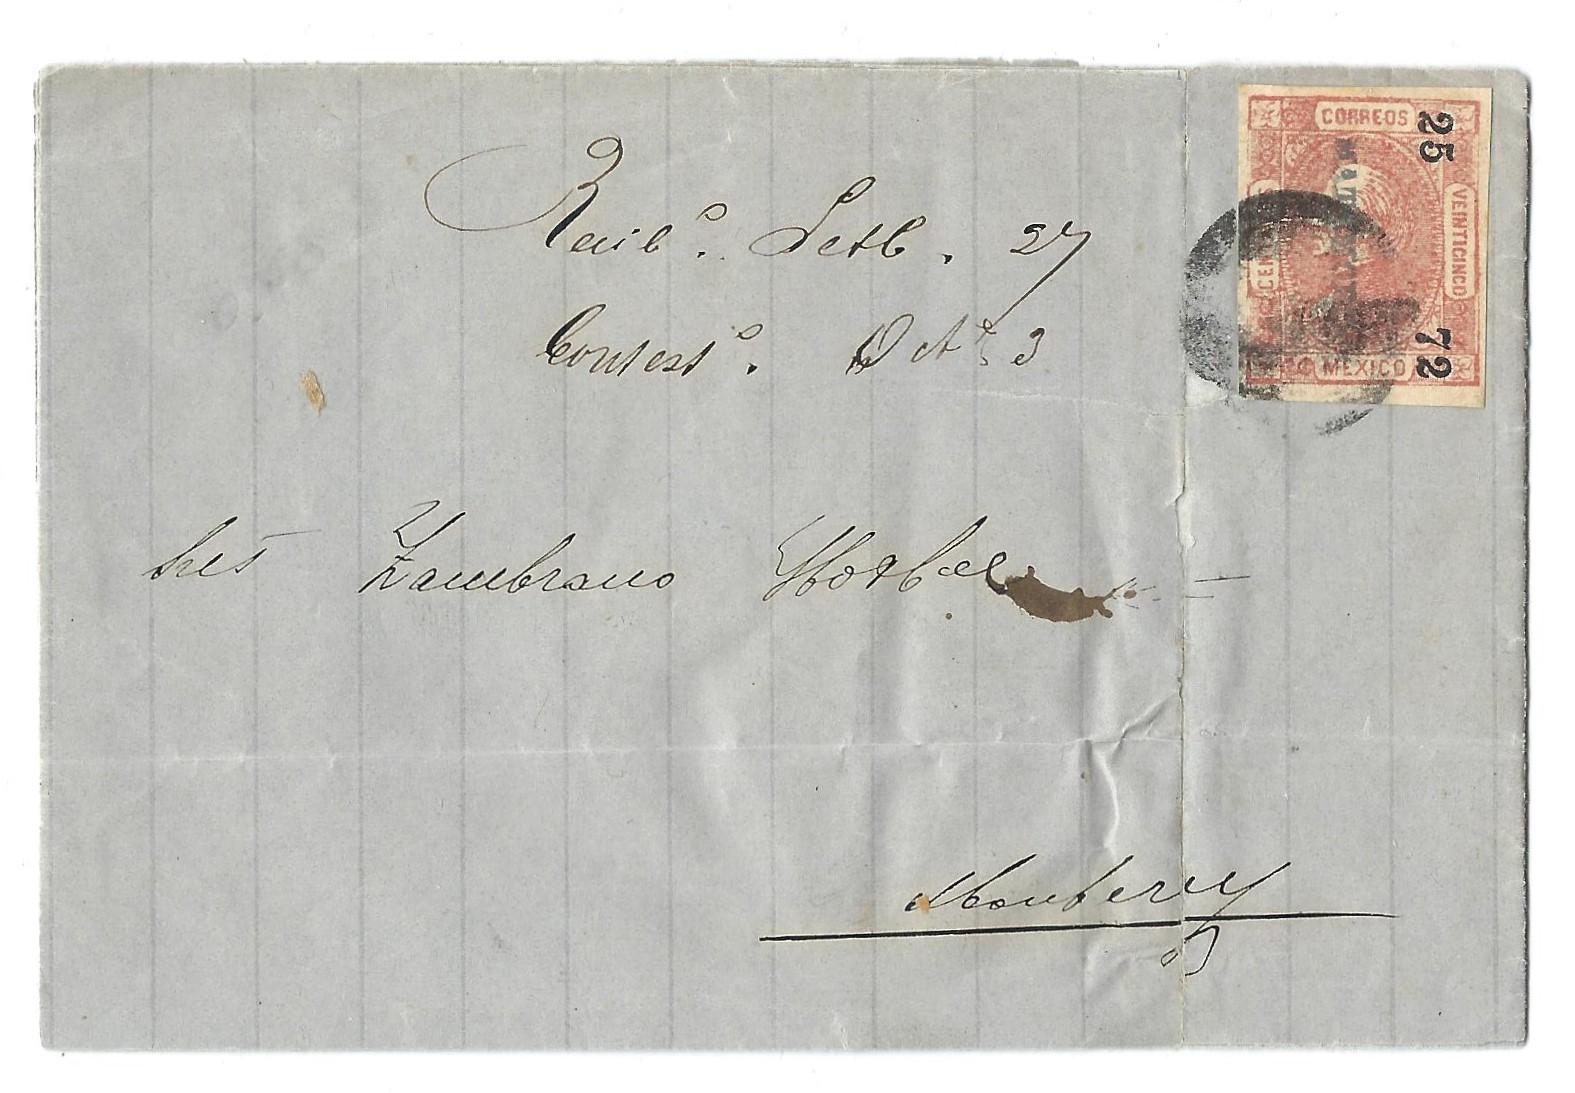 CORREOS
25
VEINTICINCO
72
MEXICO
Recib.º Setb. 27
Contest.º Oct. 3
Sres Zambrano
Monterey